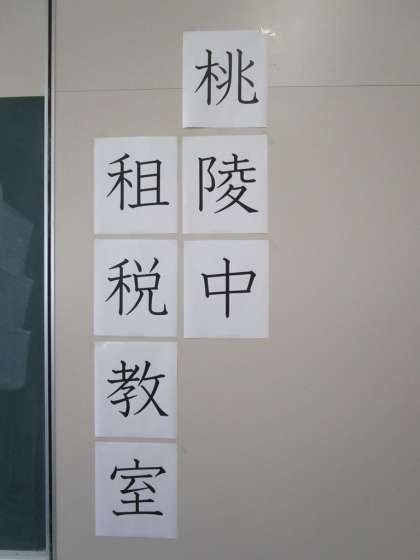 桃陵中
租税教室